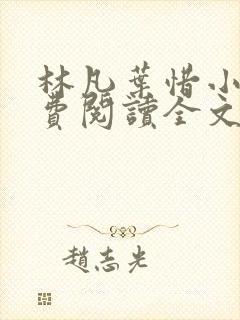 林凡葉惜小
費閱讀全文
趙志光